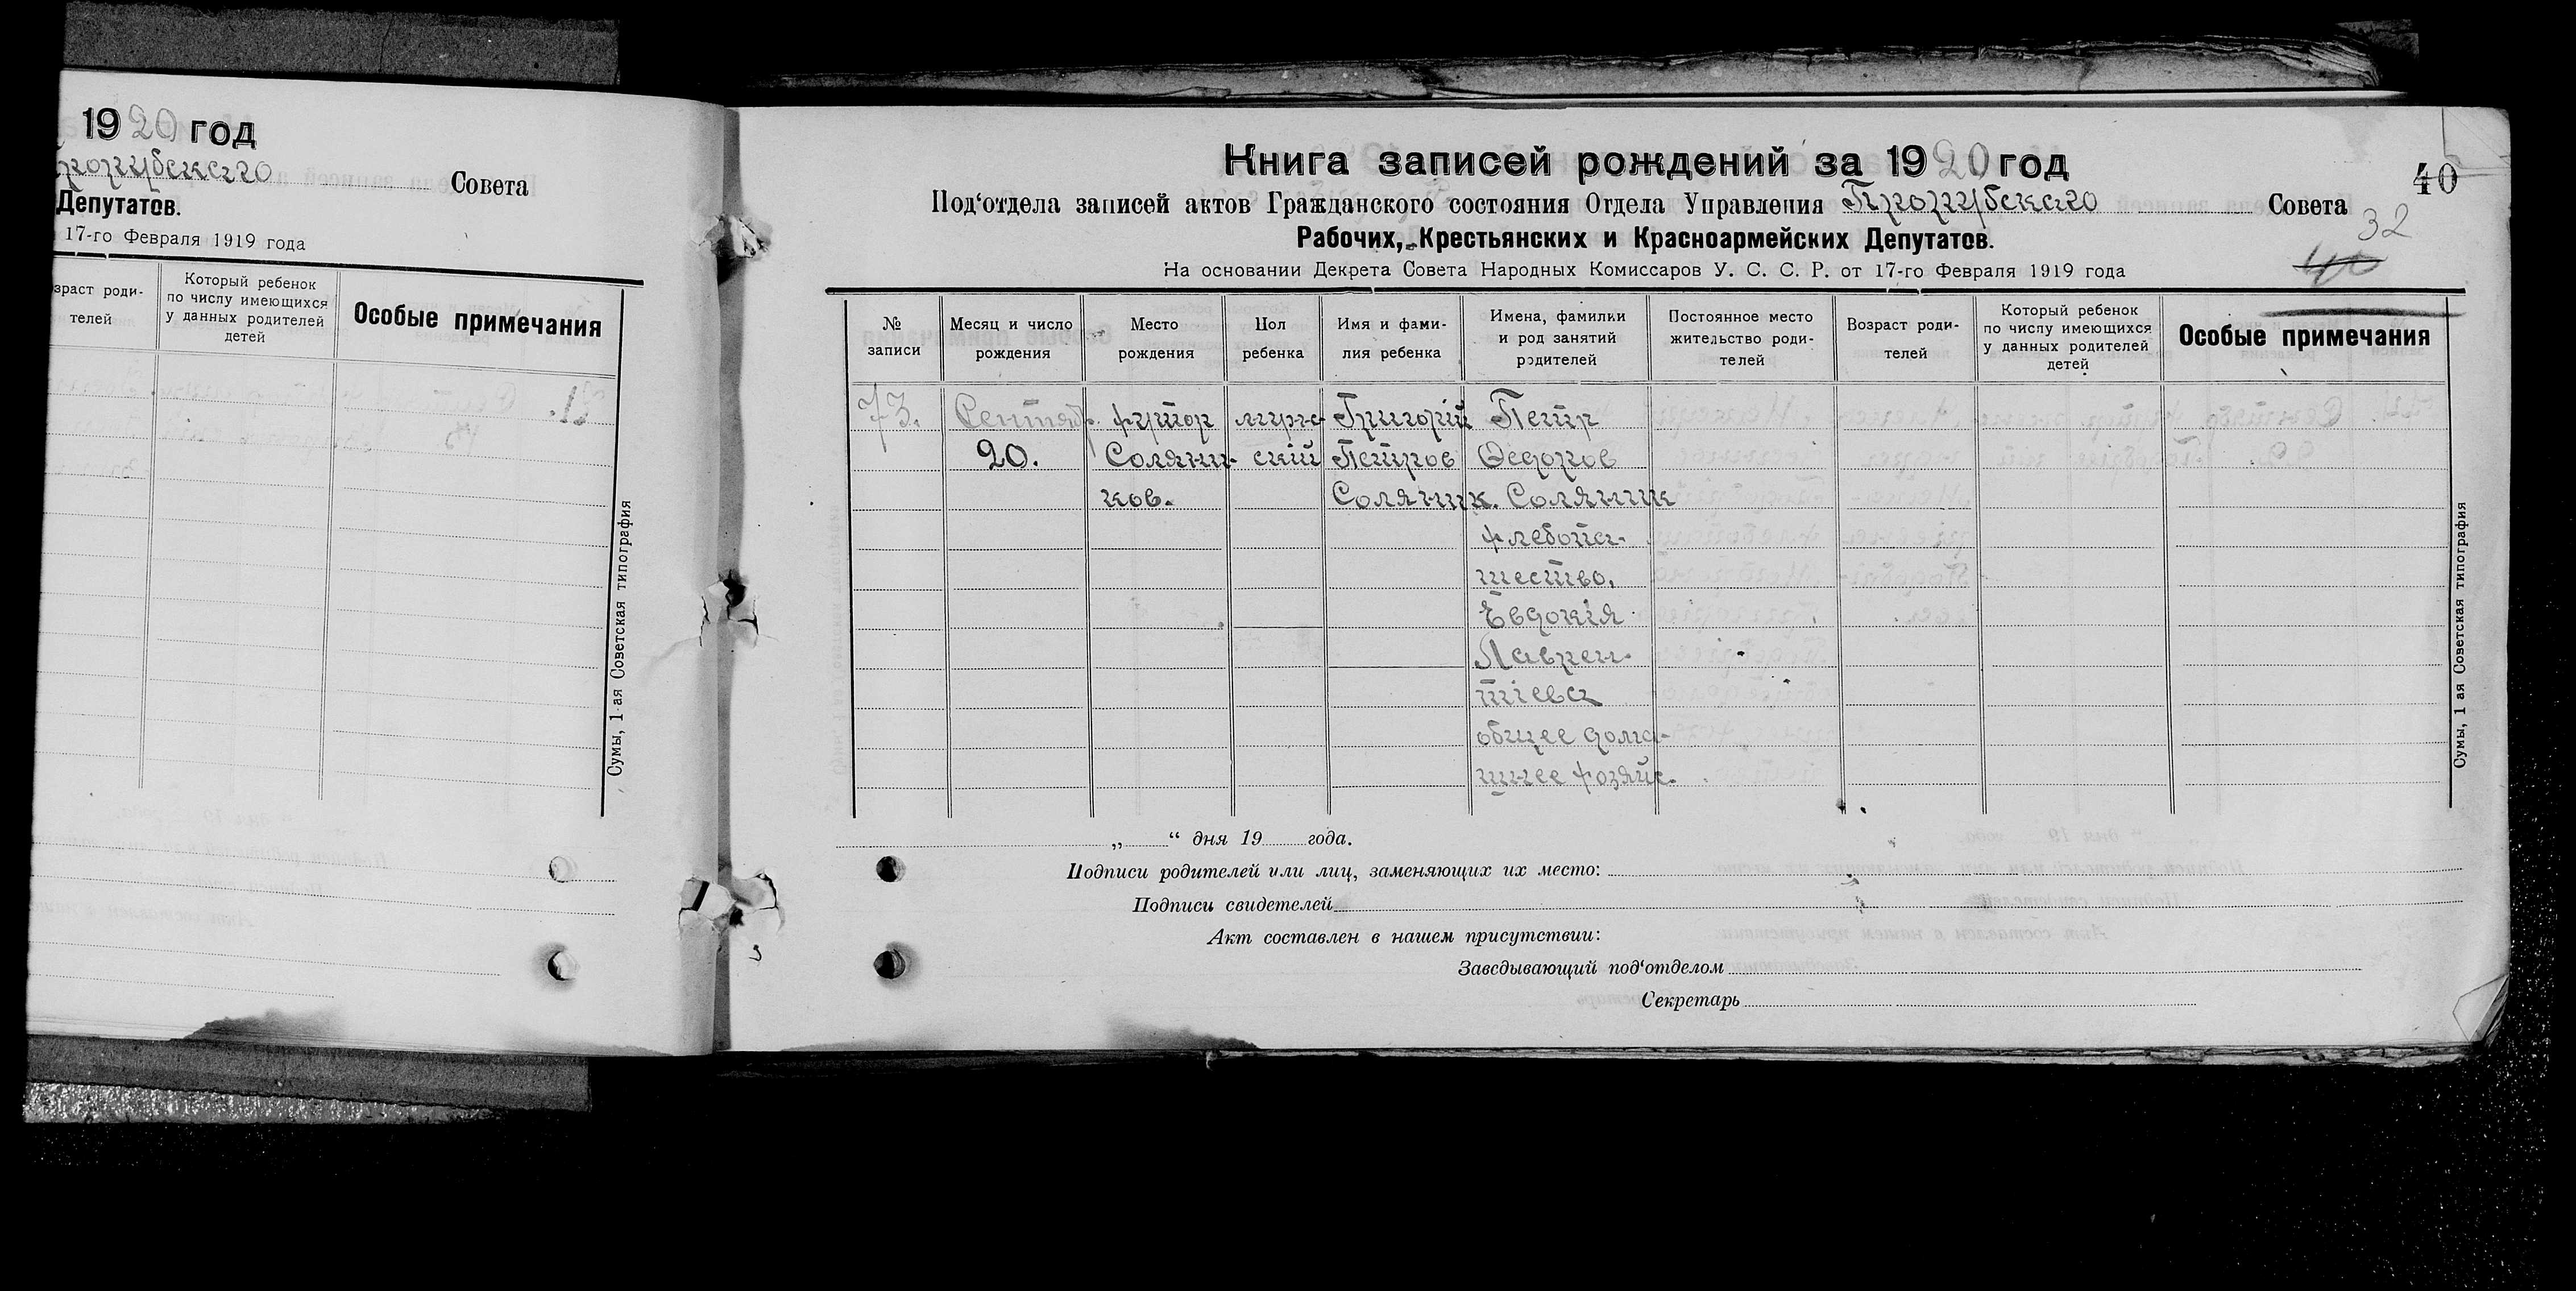 1920 год
Совета
Депутатов.
17-го Февраля 1919 года
зраст роди-
телей
Который ребенок
по числу имеющихся
у данных родителей
детей
Особые примечания
Сумы, 1-ая Советская типография
Книга записей рождений за 1920 год
40
Под‘отдела записей актов Гражданского состояния Отдела Управления Прорубскаго Совета
32
Рабочих, Крестьянских и Красноармейских Депутатов.
40
На основании Декрета Совета Народных Комиссаров У. С. С. Р. от 17-го Февраля 1919 года
№
записи
Месяц и число
рождения
Место
рождения
Пол
ребенка
Имя и фами-
лия ребенка
Имена, фамилки
и род занятий
родителей
Постоянное место
жительство роди-
телей
Возраст роди-
телей
Который ребенок
по числу имеющихся
у данных родителей
детей
Особые примечания
73.
Сентябр.
20.
хутор
Соляни-
ков.
мужс-
кий
Григорій
Петров
Соляник.
Петр
Федоров
Соляник
хлебопа-
шество.
Евдокія
Лаврен-
тіева
общее дома-
шнее хозяйс.
„ “ дня 19 года.
Подписи родителей или лиц, заменяющих их место:
Подписи свидетелей
Акт составлен в нашем присутствии:
Заведывающий под‘отделом
Секретарь
Сумы, 1 ая Советская типография